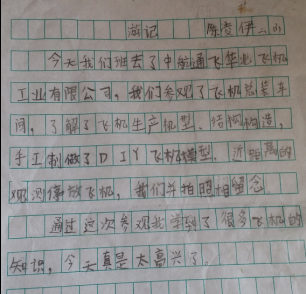 游记 陈壹伊 二小
今天我们班去了中航通飞华北飞机
工业有限公司，我们参观了飞机总装车
间，了解了飞机生产机型、结构构造，
手工制做了DIY飞机模型，近距离的
观测停放飞机，我们并拍照相留念。
通过这次参观我学到了很多飞机的
知识，今天真是太高兴了。